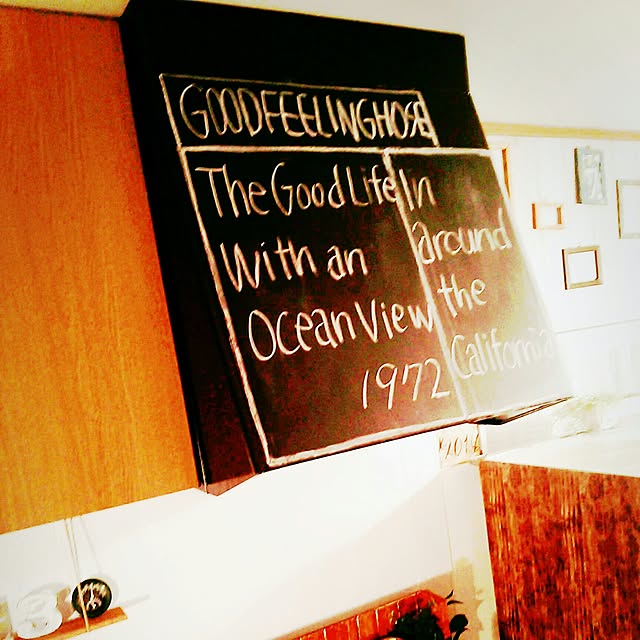 GOODFEELINGHOSE
The Good Life
With an
Ocean View
1972
In
around
the
California